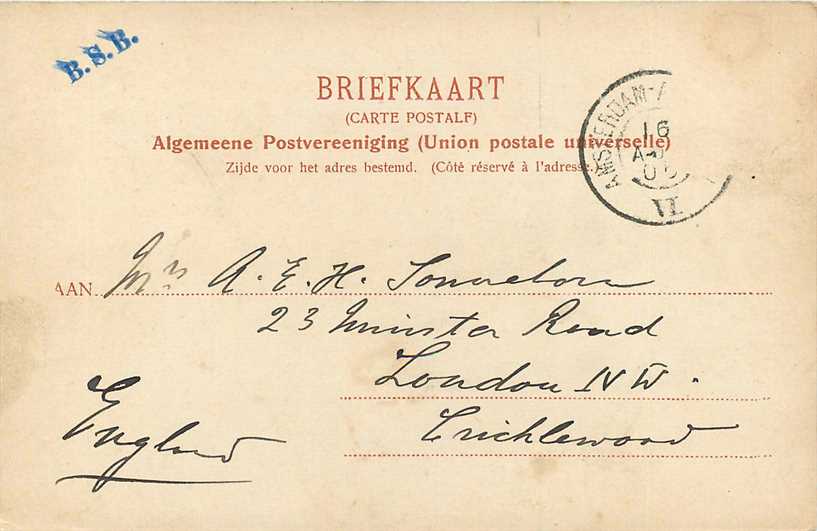 B.S.B.
BRIEFKAART
(CARTE POSTALF)
Algemeene Postvereeniging (Union postale universelle)
Zijde voor het adres bestemd. (Côté réservé à l'adresse.
AMSTERDAM-
16
VI
AAN Mrs A. E. H.
23 Minster Road
London NW.
Cricklewood
England